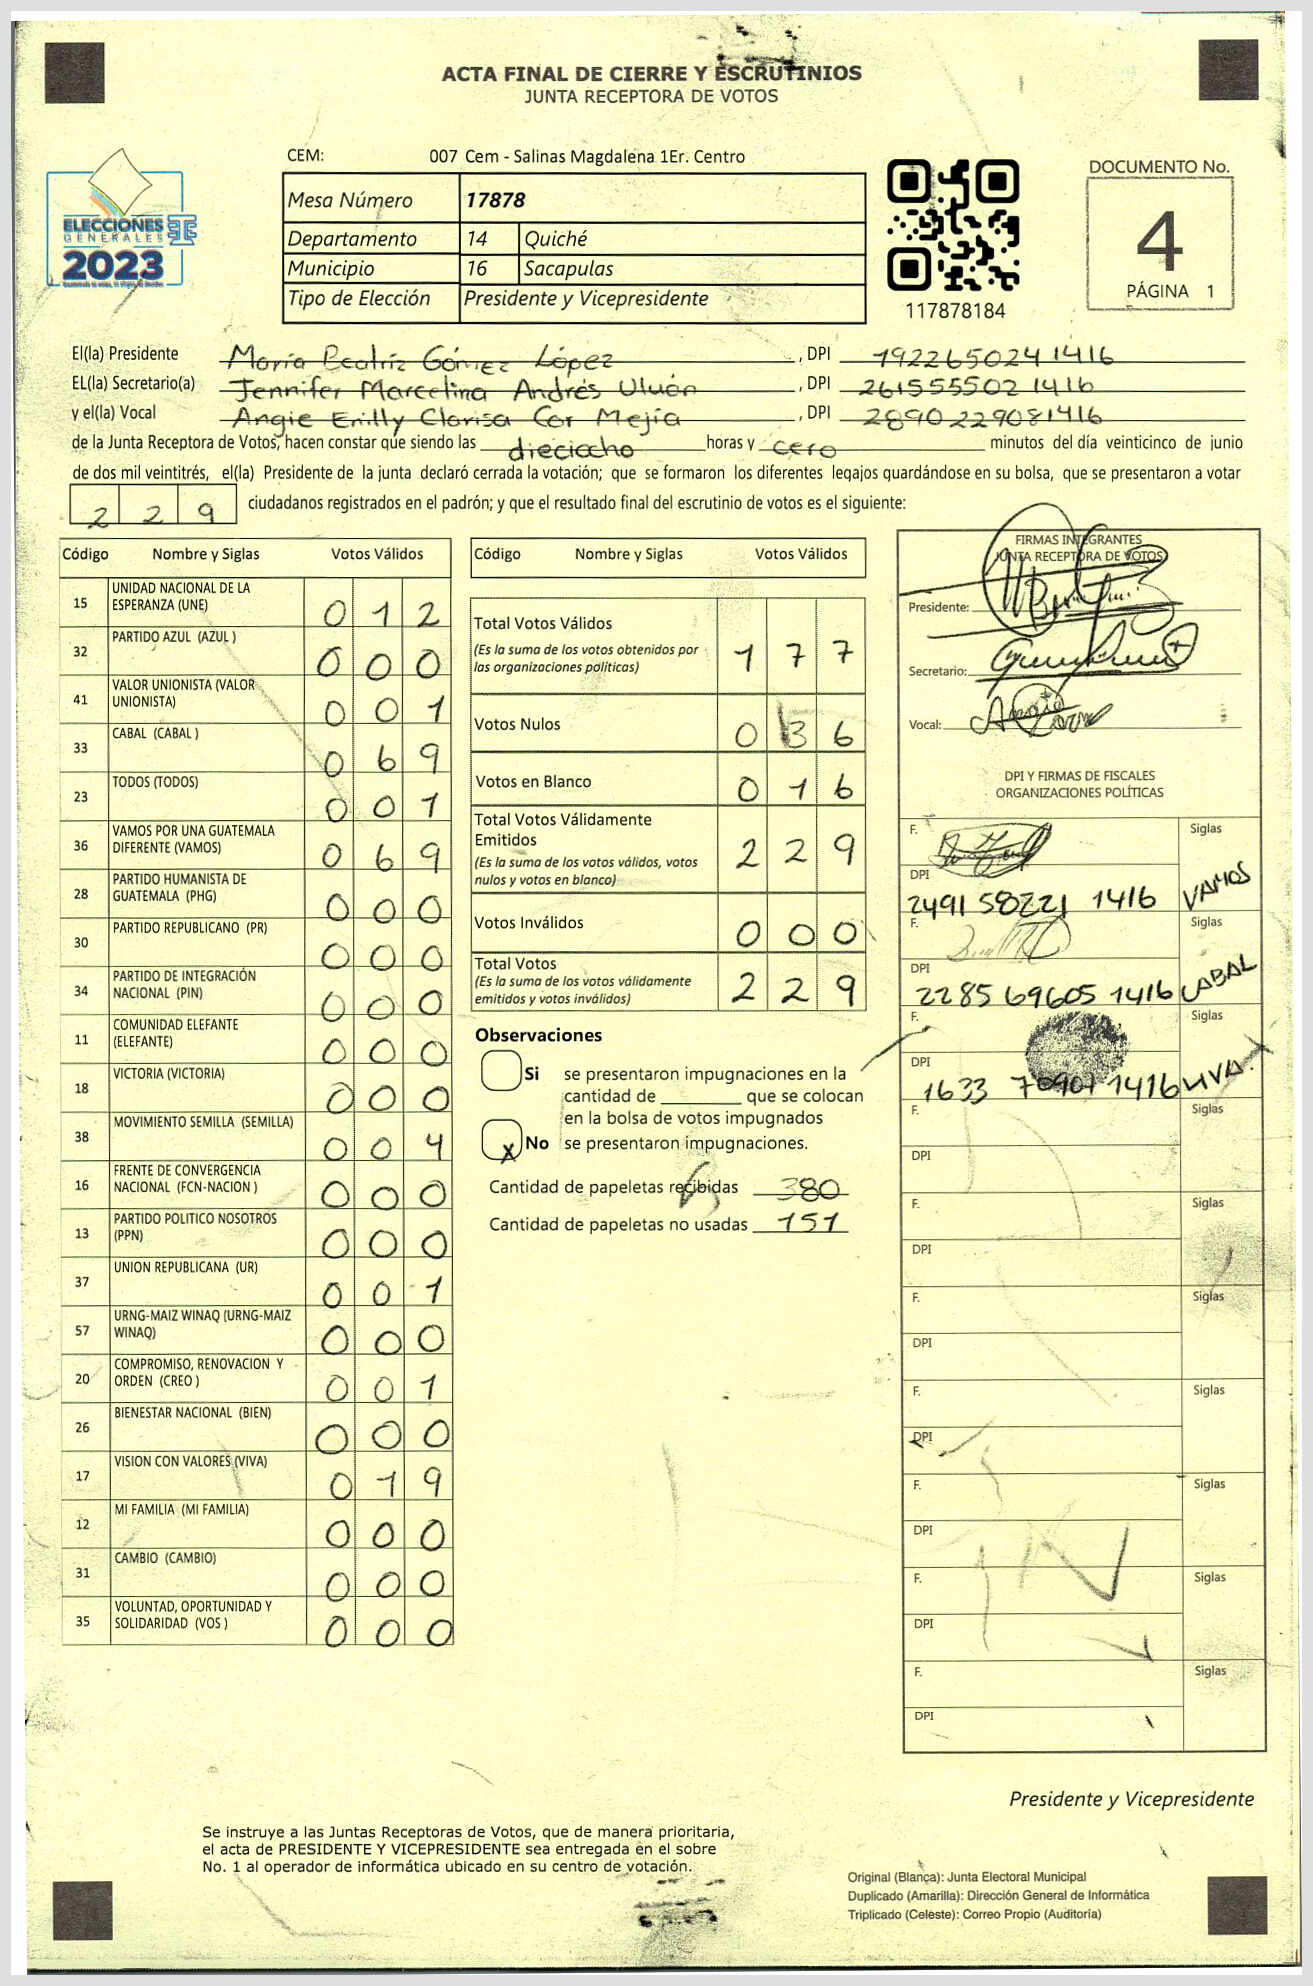 ACTA FINAL DE CIERRE Y ESCRUTINIOS
JUNTA RECEPTORA DE VOTOS
CEM: 007 Cem - Salinas Magdalena 1Er. Centro
Mesa Número 17878
Departamento 14 Quiché
Municipio 16 Sacapulas
Tipo de Elección Presidente y Vicepresidente
ELECCIONES
GENERALES
2023
117878184
DOCUMENTO No.
4
PÁGINA 1
El(la) Presidente María Beatríz Gómez López, DPI 192265024 1416
EL(la) Secretario(a) Jennifer Marcelina Andrés Uluán, DPI 261555502 1416
y el(la) Vocal Angie Emilly Clarisa Cor Mejía, DPI 2890229081416
de la Junta Receptora de Votos, hacen constar que siendo las dieciocho horas y cero minutos del día veinticinco de junio
de dos mil veintitrés, el(la) Presidente de la junta declaró cerrada la votación; que se formaron los diferentes legajos guardándose en su bolsa, que se presentaron a votar
229 ciudadanos registrados en el padrón; y que el resultado final del escrutinio de votos es el siguiente:
Código Nombre y Siglas Votos Válidos
15 UNIDAD NACIONAL DE LA ESPERANZA (UNE) 012
32 PARTIDO AZUL (AZUL ) 000
41 VALOR UNIONISTA (VALOR UNIONISTA) 001
33 CABAL (CABAL ) 069
23 TODOS (TODOS) 001
36 VAMOS POR UNA GUATEMALA DIFERENTE (VAMOS) 069
28 PARTIDO HUMANISTA DE GUATEMALA (PHG) 000
30 PARTIDO REPUBLICANO (PR) 000
34 PARTIDO DE INTEGRACIÓN NACIONAL (PIN) 000
11 COMUNIDAD ELEFANTE (ELEFANTE) 000
18 VICTORIA (VICTORIA) 000
38 MOVIMIENTO SEMILLA (SEMILLA) 004
16 FRENTE DE CONVERGENCIA NACIONAL (FCN-NACION ) 000
13 PARTIDO POLITICO NOSOTROS (PPN) 000
37 UNION REPUBLICANA (UR) 001
57 URNG-MAIZ WINAQ (URNG-MAIZ WINAQ) 000
20 COMPROMISO, RENOVACION Y ORDEN (CREO ) 001
26 BIENESTAR NACIONAL (BIEN) 000
17 VISION CON VALORES (VIVA) 019
12 MI FAMILIA (MI FAMILIA) 000
31 CAMBIO (CAMBIO) 000
35 VOLUNTAD, OPORTUNIDAD Y SOLIDARIDAD (VOS ) 000
Código Nombre y Siglas Votos Válidos
Total Votos Válidos 177
(Es la suma de los votos obtenidos por
las organizaciones políticas)
Votos Nulos 036
Votos en Blanco 016
Total Votos Válidamente
Emitidos 229
(Es la suma de los votos válidos, votos
nulos y votos en blanco)
Votos Inválidos 000
Total Votos 229
(Es la suma de los votos válidamente
emitidos y votos inválidos)
Observaciones
Si se presentaron impugnaciones en la
cantidad de ________ que se colocan
en la bolsa de votos impugnados
X No se presentaron impugnaciones.
Cantidad de papeletas recibidas 380
Cantidad de papeletas no usadas 151
FIRMAS INTEGRANTES
JUNTA RECEPTORA DE VOTOS
Presidente:
Secretario:
Vocal:
DPI Y FIRMAS DE FISCALES
ORGANIZACIONES POLÍTICAS
F. Siglas
DPI
2491 58221 1416 VAMOS
F. Siglas
DPI
2285 69605 1416 CABAL
F. Siglas
DPI
1633 70901 1416 VIVA.
F. Siglas
DPI
F. Siglas
DPI
F. Siglas
DPI
F. Siglas
DPI
F. Siglas
DPI
F. Siglas
DPI
F. Siglas
DPI
Presidente y Vicepresidente
Se instruye a las Juntas Receptoras de Votos, que de manera prioritaria,
el acta de PRESIDENTE Y VICEPRESIDENTE sea entregada en el sobre
No. 1 al operador de informática ubicado en su centro de votación.
Original (Blanca): Junta Electoral Municipal
Duplicado (Amarilla): Dirección General de Informática
Triplicado (Celeste): Correo Propio (Auditoría)